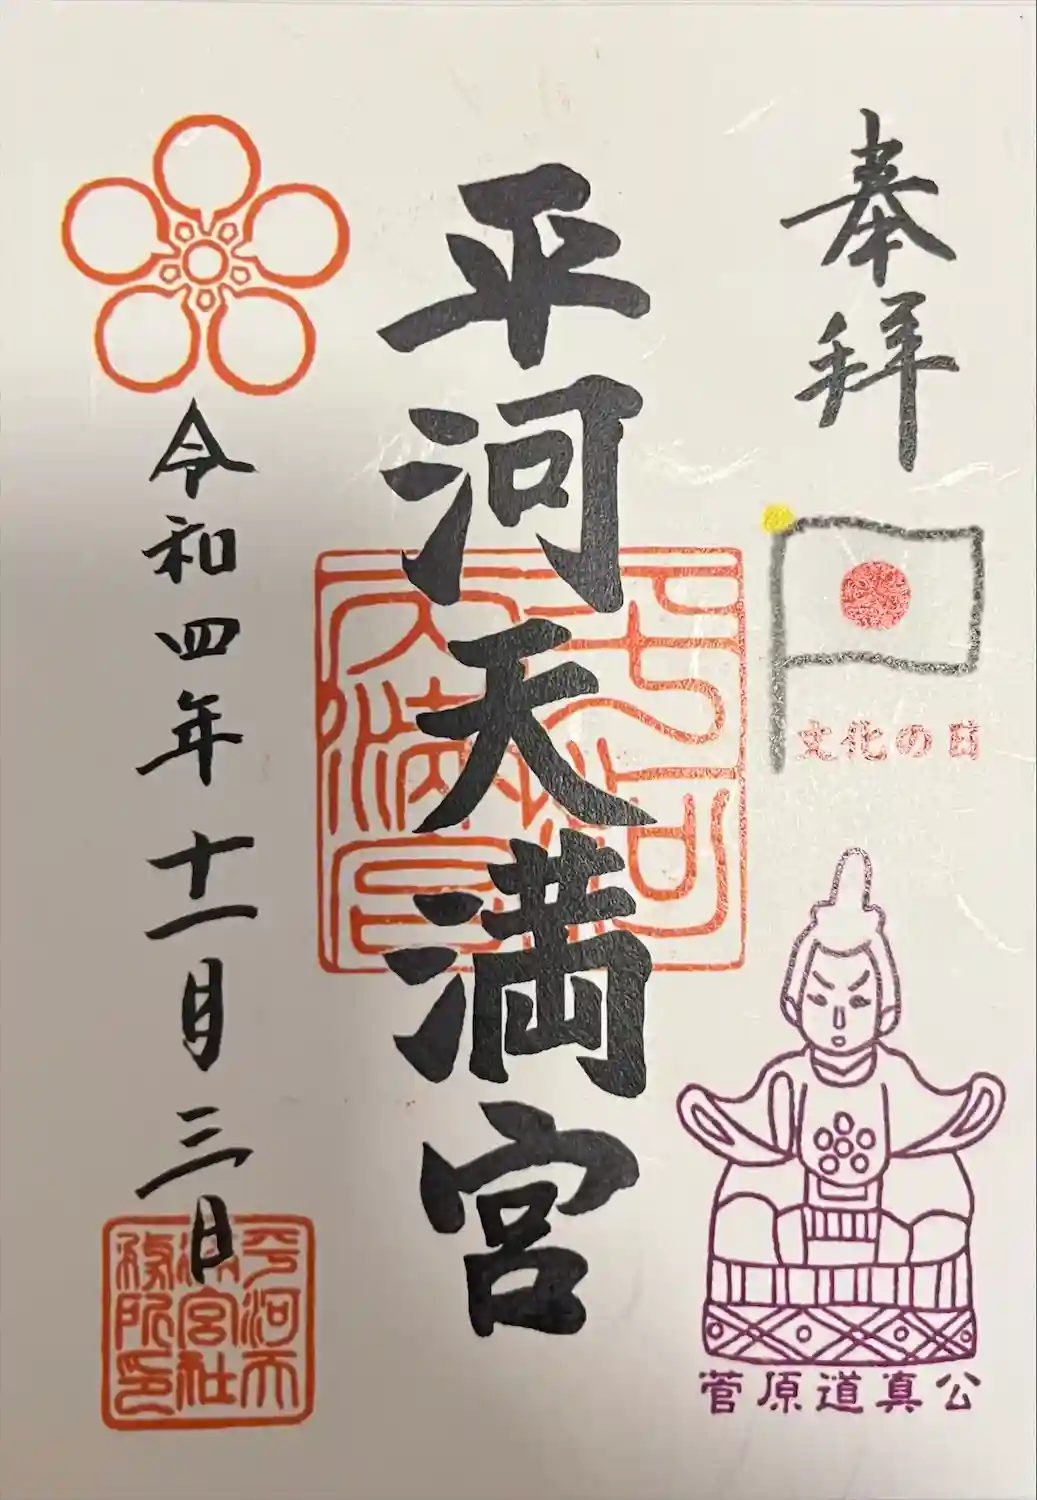 奉拝
文化の日
菅原道真公
平河天満宮
平河天満宮
令和四年十一月三日
平河天満宮社務所印